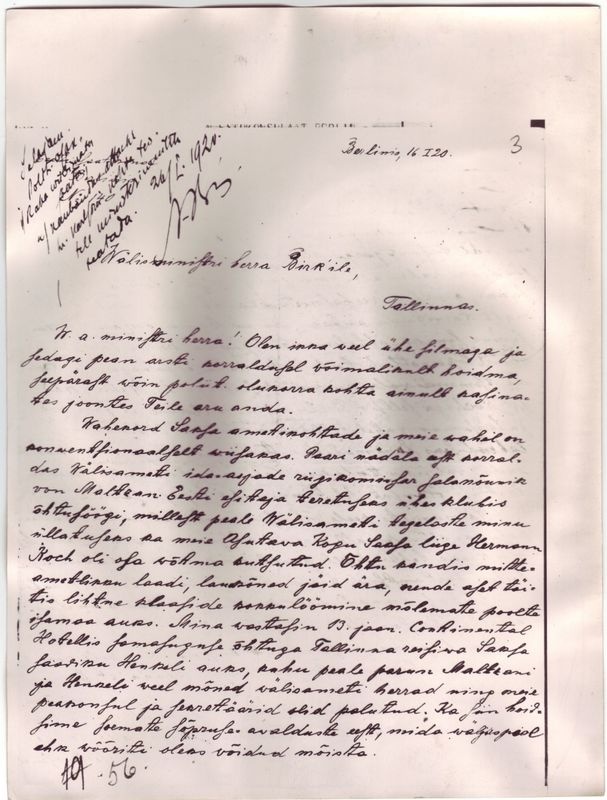 Berlinis, 16 I 20.
3
26/I 1920.
teatada.
Wälisministri herra Birk'ile,
Tallinnas.
W. a. ministri herra! Olen ikka weel ühe silmaga ja
sedagi pean arsti korraldusel võimalikult hoidma,
seepärast wõin polit. olukorra kohta ainult kasina-
tes joontes Teile aru anda.
Wahekord Saksa ametikohtade ja meie wahel on
konwentsionaalselt wiisakas. Paari nädala eest korral-
das Wälisameti ida-asjade riigikomissar salanõunik
von Maltzan Eesti esitaja terwituseks ühes klubis
õhtusöögi, millest peale Wälisameti tegelaste minu
üllatuseks ka meie Asutawa Kogu Saksa liige Hermann
Koch oli osa wõtma kutsutud. Õhtu kandis mitte-
ametlikku laadi, lauakõned jäid ära, nende aset täi-
tis lihtne klaaside kokkulöömine mõlemate poolte
isamaa auks. Mina wastasin 13. jaan. Continental
Hotellis samasuguse õhtuga Tallinna reisiwa Saksa
saadiku Henkeli auks, kuhu peale parun Maltzani
ja Henkeli weel mõned wälisameti herrad ning meie
peakonsul ja sekretäärid olid palutud. Ka siin hoid-
sime soemate sõpruse awalduste eest, mida wäljaspool
ehk wõõriti oleks wõidud mõista.
56.